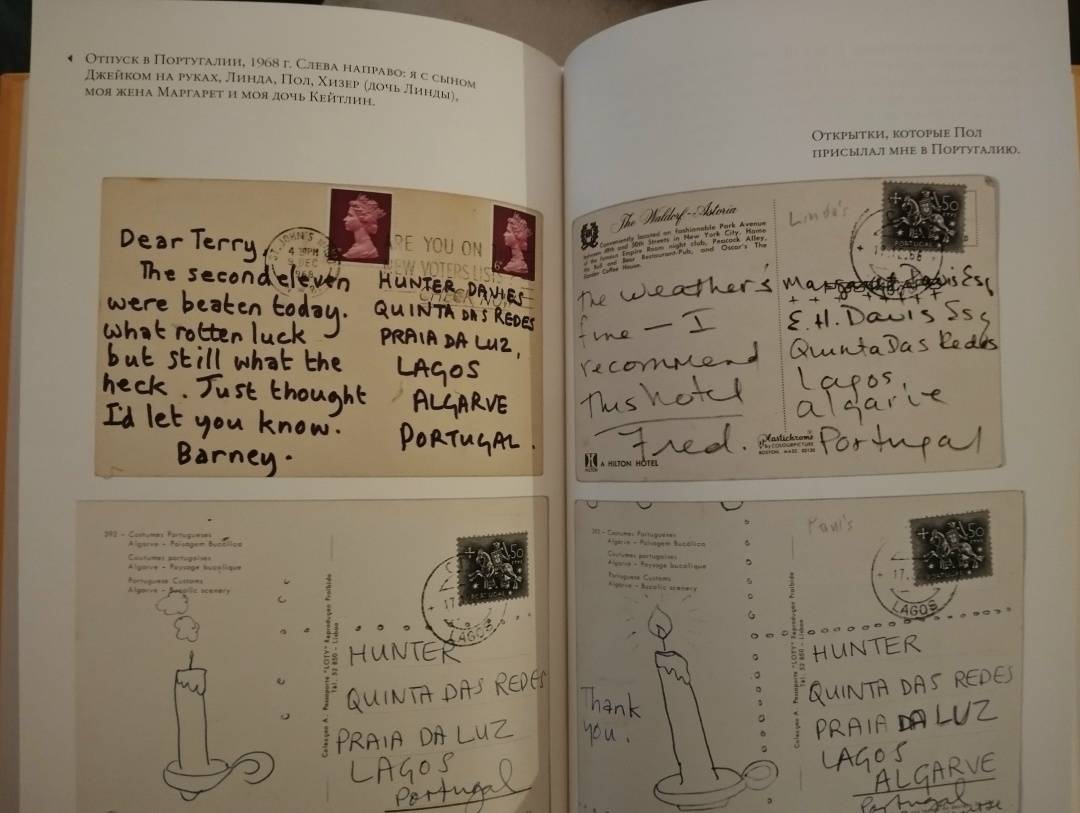 Отпуск в Португалии, 1968 г. Слева направо: я с сыном
Джейком на руках, Линда, Пол, Хизер (дочь Линды),
моя жена Маргарет и моя дочь Кейтлин.
Открытки, которые Пол
присылал мне в Португалию.
ST. JOHN'S
4 30PM
DEC
1968
ARE YOU ON
NEW VOTERS LIST
CHECK NOW
6
Dear Terry,
The second eleven
were beaten today.
what rotten luck
but still what the
heck. Just thought
I'd let you know.
Barney.
HUNTER DAVIES
QUINTA DAS REDES
PRAIA DA LUZ,
LAGOS
ALGARVE
PORTUGAL.
The Waldorf-Astoria
Conveniently located on fashionable Park Avenue
between 49th and 50th Streets in New York City. Home
of the famous Empire Room night club, Peacock Alley,
the Bull and Bear Restaurant-Pub, and Oscar's The
Coffee House.
Linda's
1$50
PORTUGAL
The weather's
fine — I
recommend
this hotel
Fred.
E.H. Davis Esq
Quinta Das Redes
Lagos,
algarve
Portugal
HILTON
A HILTON HOTEL
Plastichrome
BY COLOURPICTURE
BOSTON, MASS. 02130
393 - Costumes Portugueses
Algarve - Paisagem Bucólica
Coutumes portugaises
Algarve - Paysage bucolique
Portuguese Customs
Algarve - Bucolic scenery
Colecção A. Passaporte "LOTY" Reprodução Proibida
Tel. 52 850 - Lisboa
1$50
PORTUGAL
17.
LAGOS
HUNTER
QUINTA DAS REDES
PRAIA DA LUZ
LAGOS
Portugal
Costumes Portugueses
Algarve - Paisagem Bucólica
Coutumes portugaises
Algarve - Paysage bucolique
Portuguese Customs
Algarve - Bucolic scenery
Colecção A. Passaporte "LOTY" Reprodução Proibida
Tel. 52 850 - Lisboa
Paul's
1$50
PORTUGAL
17.
LAGOS
Thank
you.
HUNTER
QUINTA DAS REDES
PRAIA DA LUZ
LAGOS
ALGARVE
Portugal